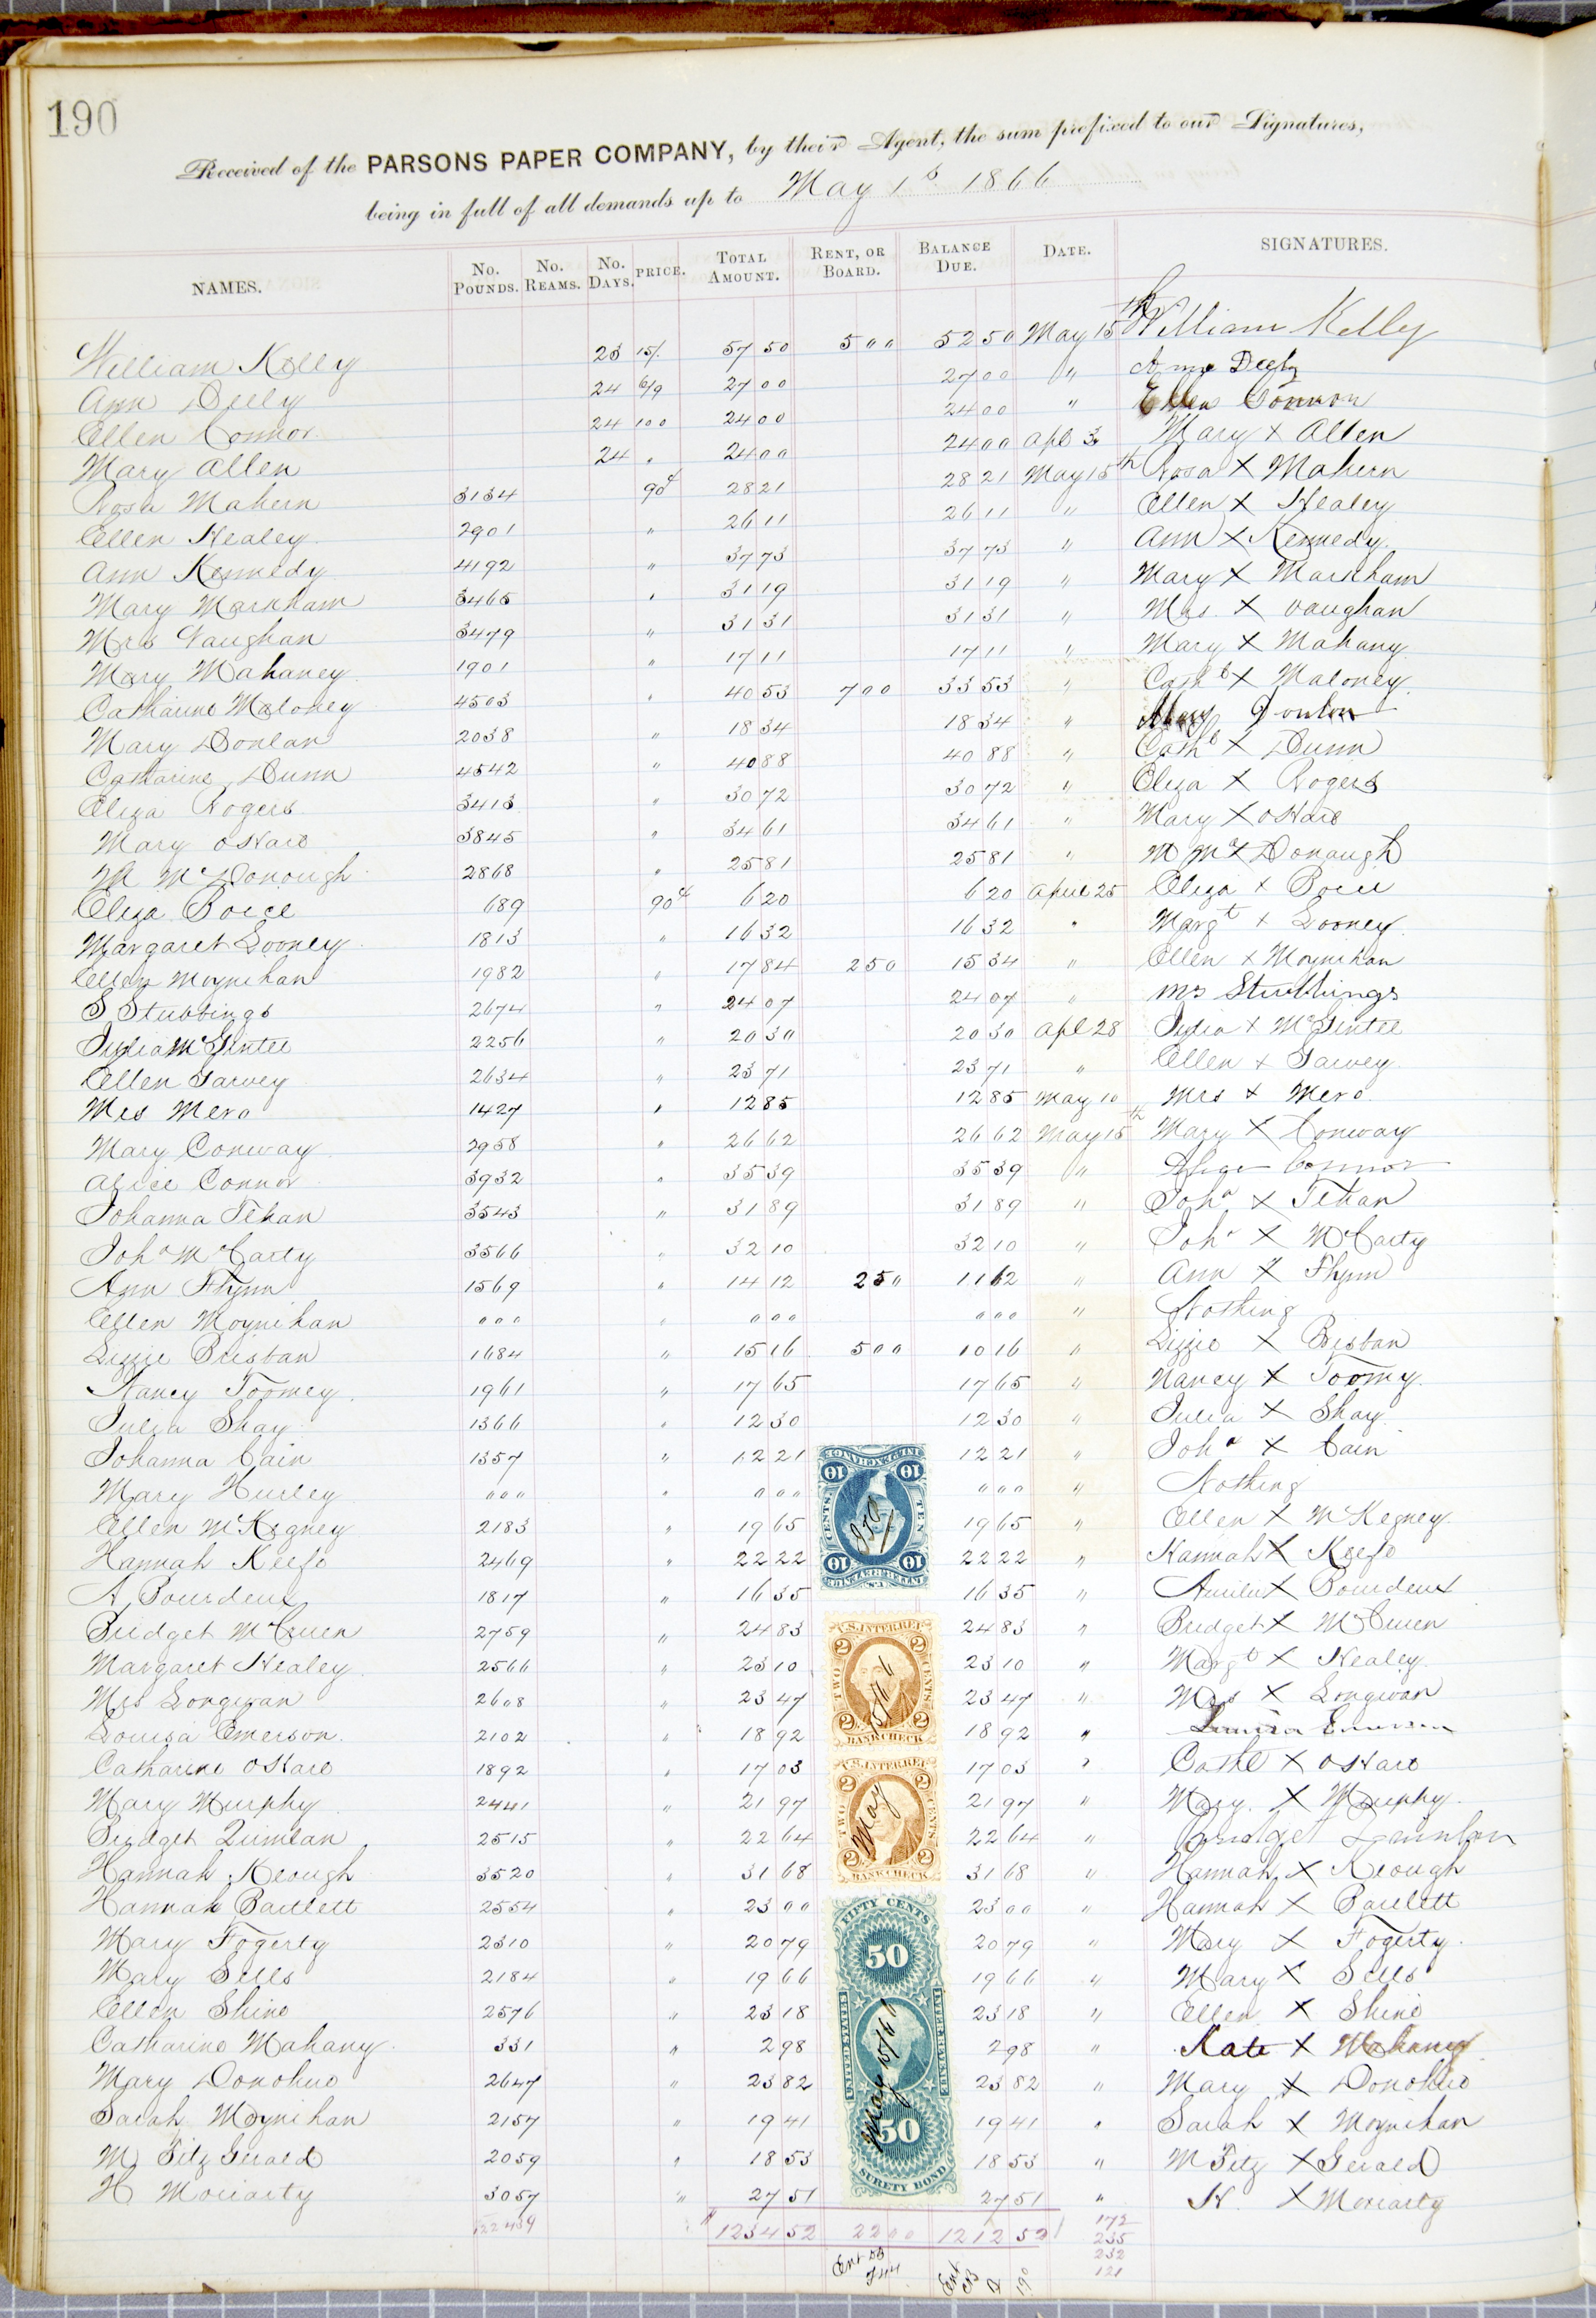 190
Received of the PARSONS PAPER COMPANY, by their Agent, the sum prefixed to our Signatures,
being in full of all demands up to May 1st 1866
NAMES. No. POUNDS. No. REAMS. No. DAYS. PRICE. TOTAL AMOUNT. RENT, OR BOARD. BALANCE DUE. DATE. SIGNATURES.
William Kelly 23 15/. 57 50 5 00 52 50 May 15th William Kelly
Ann Deely 24 6/9 27 00 27 00 "
Ellen Connor 24 100 24 00 24 00 " Ellen Connor
Mary Allen 24 " 24 00 24 00 Apl 3 Mary X Allen
Rosa Mahern 3134 90c 28 21 28 21 May 15th Rosa X Mahern
Ellen Healey 2901 " 26 11 26 11 " Ellen X Healey
Ann Kennedy 4192 " 37 73 37 73 " Ann X Kennedy
Mary Markham 3465 " 31 19 31 19 " Mary X Markham
Mrs Vaughan 3479 " 31 31 31 31 " Mrs. X Vaughan
Mary Mahaney 1901 " 17 11 17 11 " Mary X Mahany
Catharine Maloney 4503 " 40 53 7 00 33 53 " Cath X Maloney
Mary Donlan 2038 " 18 34 18 34 " Mary Donlon
Catharine Dunn 4542 " 40 88 40 88 " Cath X Dunn
Eliza Rogers 3413 " 30 72 30 72 " Eliza X Rogers
Mary OHare 3845 " 34 61 34 61 " Mary X OHare
M McDonough 2868 " 25 81 25 81 " M Mc X Donough
Eliza Boice 689 90c 6 20 6 20 April 25 Eliza X Boice
Margaret Looney 1813 " 16 32 16 32 " Margt X Looney
Ellen Moynihan 1982 " 17 84 2 50 15 34 " Ellen X Moynihan
S Stubbings 2674 " 24 07 24 07 " Mrs Stubbings
Julia McGintee 2256 " 20 30 20 30 Apl 28 Julia X McGintee
Ellen Garvey 2634 " 23 71 23 71 " Ellen X Garvey
Mrs Mero 1427 " 12 85 12 85 May 10 Mrs X Mero
Mary Conway 2958 " 26 62 26 62 May 15th Mary X Conway
Alice Connor 3932 " 35 39 35 39 " Connor
Johanna Tehan 3543 " 31 89 31 89 " Joha X Tehan
Joha McCarty 3566 " 32 10 32 10 " Joha X McCarty
Ann Flynn 1569 " 14 12 2 50 11 62 " Ann X Flynn
Ellen Moynihan 000 " 0 00 0 00 " Nothing
Lizzie Brisban 1684 " 15 16 5 00 10 16 " Lizzie X Brisban
Nancy Toomey 1961 " 17 65 17 65 " Nancy X Toomy
Julia Shay 1366 " 12 30 12 30 " Julia X Shay
Johanna Cain 1357 " 12 21 12 21 " Joha X Cain
Mary Hurley 000 " 0 00 0 00 " Nothing
Ellen McKegney 2183 " 19 65 19 65 " Ellen X McKegney
Hannah Keefe 2469 " 22 22 22 22 " Hannah X Keefe
A Bourdeux 1817 " 16 35 16 35 " X Bourdeux
Bridget McCuen 2759 " 24 83 24 83 " Bridget X McCuen
Margaret Healey 2566 " 23 10 23 10 " Margt X Healey
Mrs Longwan 2608 " 23 47 23 47 " Mrs X Longwan
Louisa Emerson 2102 " 18 92 18 92 " Louisa Emerson
Catharine OHare 1892 " 17 03 17 03 " Cath X OHare
Mary Murphy 2441 " 21 97 21 97 " Mary X Murphy
Bridget Quinlan 2515 " 22 64 22 64 " Bridget Quinlan
Hannah Keough 3520 " 31 68 31 68 " Hannah X Keough
Hannah Bartlett 2554 " 23 00 23 00 " Hannah X Bartlett
Mary Fogerty 2310 " 20 79 20 79 " Mary X Fogerty
Mary Sells 2184 " 19 66 19 66 " Mary X Sells
Ellen Shine 2576 " 23 18 23 18 " Ellen X Shine
Catharine Mahany 331 " 2 98 2 98 " Kate X Mahany
Mary Donohue 2647 " 23 82 23 82 " Mary X Donohue
Sarah Moynihan 2157 " 19 41 19 41 " Sarah X Moynihan
M FitzGerald 2059 " 18 53 18 53 " M Fitz X Gerald
H Moriarty 3057 " 27 51 27 51 " H. X Moriarty
122439 1234 52 22 00 1212 52
172
235
232
121
INTER. REVENUE
INL. EXCHANGE
TEN CENTS.
10 10 10 10
U.S. INTER. REV.
2 2 TWO CENTS. 2 2
BANK CHECK
15th
U.S. INTER. REV.
2 2 TWO CENTS. 2 2
BANK CHECK
May
FIFTY CENTS
50
UNITED STATES INTER. REVENUE
May 15/66
50
SURETY BOND